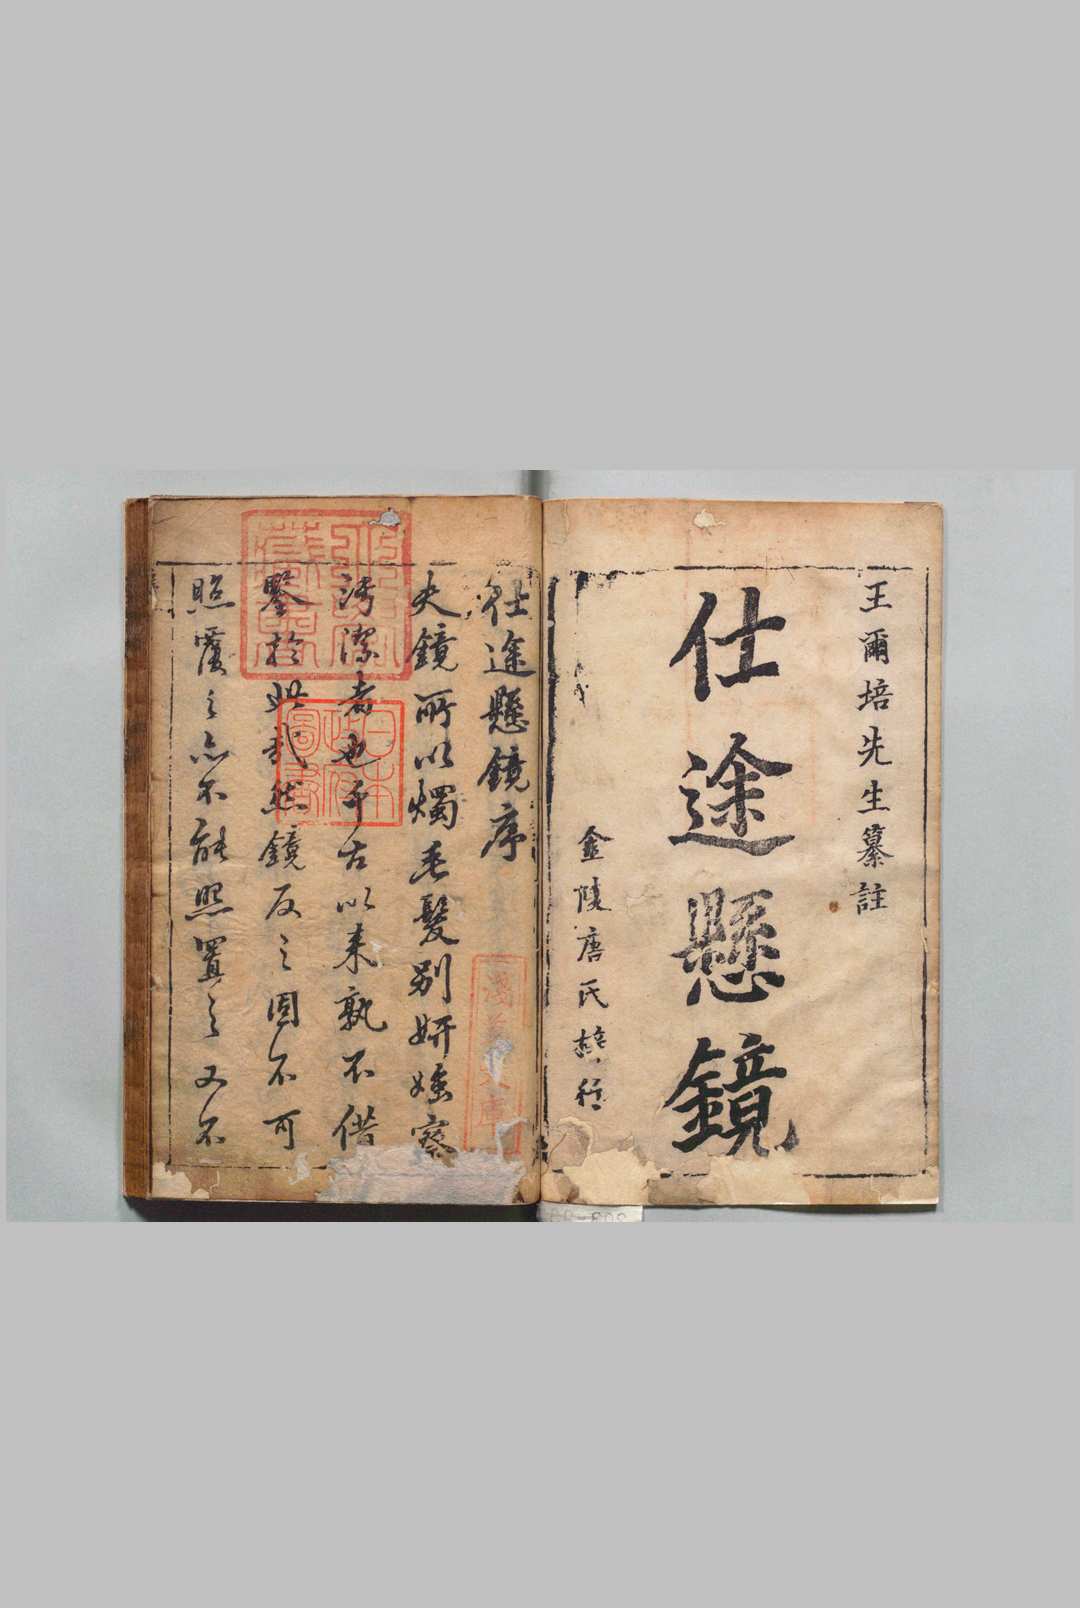 王爾培先生纂註
仕途懸鏡
金陵唐氏梓行
仕途懸鏡序
夫鏡所以燭毛髮別妍媸察
污潔者也千古以來孰不借
鑒於此哉然鏡反之固不可
照覆之亦不能照置之又不
日本
政府
圖書
淺草文庫